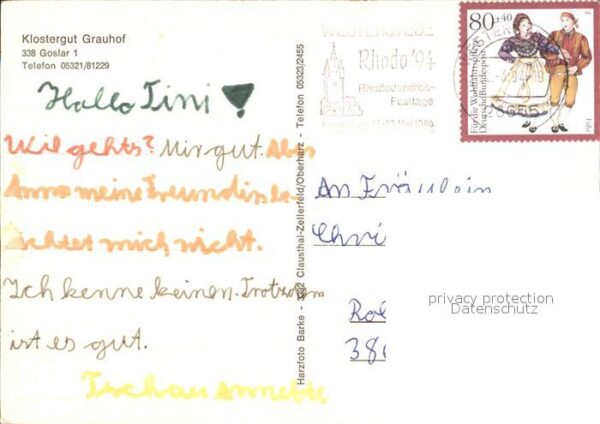 Klostergut Grauhof
338 Goslar 1
Telefon 05321/81229
Hallo Tini!
Wil gehts? Mir gut. Aber
Anna meine Freundin be
achtet mich nicht.
Ich kenne keinen. Trotzdem
ist es gut.
Tschau Annette
Harzfoto Barke - 3392 Clausthal-Zellerfeld/Oberharz - Telefon 05323/2455
WESTERSTEDE
Rhodo '94
Rhododendron-
Festtage
80+40
Für die Wohlfahrtspflege
Deutsche Bundespost
An Fräulein
Chri
Rol
38
privacy protection
Datenschutz